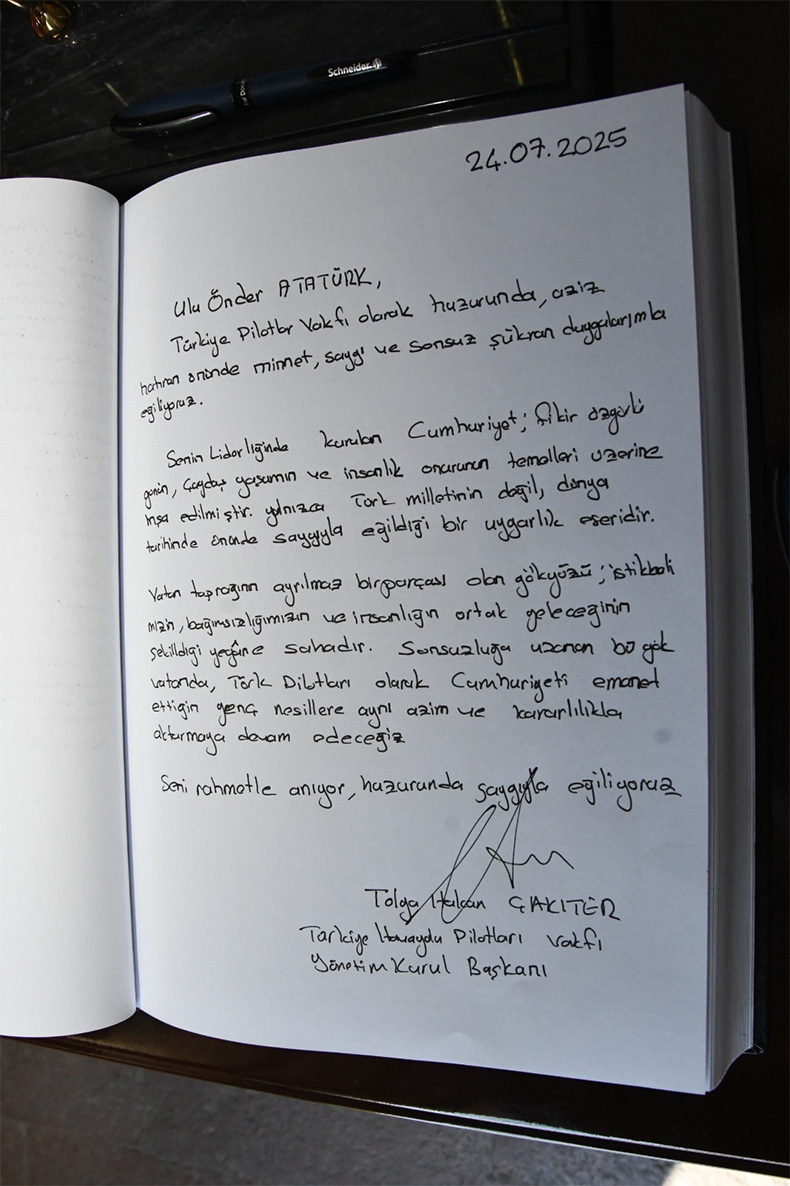 Schneider
24.07.2025
Ulu Önder ATATÜRK,
Türkiye Pilotlar Vakfı olarak huzurunda, aziz
hatıran önünde minnet, saygı ve sonsuz şükran duygularımla
eğiliyoruz.
Senin Liderliğinde kurulan Cumhuriyet; fikir özgürlü
ğünün, çağdaş yaşamın ve insanlık onurunun temelleri üzerine
inşa edilmiştir. yalnızca Türk milletinin değil, dünya
tarihinde önünde saygıyla eğildiği bir uygarlık eseridir.
Vatan toprağının ayrılmaz bir parçası olan gökyüzü; istikbali
mizin, bağımsızlığımızın ve insanlığın ortak geleceğinin
şekilldiği yegâne sahadır. Sonsuzluğa uzanan bu gök
vatanda, Türk Pilotları olarak Cumhuriyeti emanet
ettiğin genç nesillere aynı azim ve kararlılıkla
aktarmaya devam edeceğiz
Seni rahmetle anıyor, huzurunda saygıyla eğiliyoruz
Tolga Hakan ÇAKITER
Türkiye Havayolu Pilotları Vakfı
Yönetim Kurul Başkanı